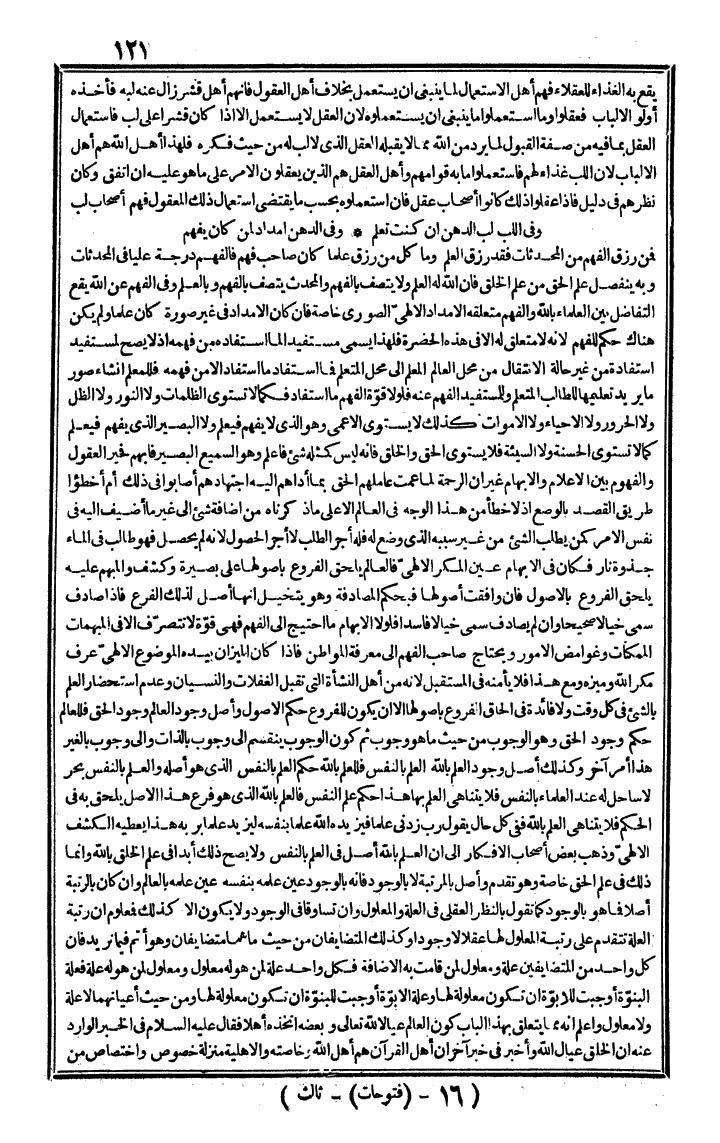 ١٢١
يقع به الغذاء للعقلاء فهم أهل الاستعمال لما ينبغى ان يستعمل بخلاف أهل العقول فانهم أهل قشر زال عنه لبه فأخذه
أولو الالباب فعقلوا وما استعملوا ما ينبغى ان يستعملوه لان العقل لا يستعمل الا اذا كان قشرا على لب فاستعمال
العقل بما فيه من صفة القبول لما يرد من الله مما لا يقبله العقل الذى لا لب له من حيث فكره فلهذا أهل الله هم أهل
الالباب لان اللب غذاء لهم فاستعملوا ما به قوامهم وأهل العقل هم الذين يعقلون الامر على ما هو عليه ان اتفق وكان
نظرهم فى دليل فاذا عقلوا ذلك كانوا أصحاب عقل فان استعملوه بحسب ما يقتضى استعمال ذلك المعقول فهم أصحاب لب
وفى اللب لب الدهن ان كنت تعلم * وفى الدهن امداد لمن كان يفهم
فمن رزق الفهم من المحدثات فقد رزق العلم وما كل من رزق علما كان صاحب فهم فالفهم درجة عليا فى المحدثات
وبه ينفصل علم الحق من علم الخلق فان الله له العلم ولا يتصف بالفهم والمحدث يتصف بالفهم وبالعلم وفى الفهم عن الله يقع
التفاضل بين العلماء بالله والفهم متعلقه الامداد الالهىّ الصورى خاصة فان كان الامداد فى غير صورة كان علما ولم يكن
هناك حكم للفهم لانه لا متعلق له الا فى هذه الحضرة فلهذا يسمى مستفيد الما استفاده من فهمه اذ لا يصح لمستفيد
استفادة من غير حالة الانتقال من محل العالم المعلم الى محل المتعلم فما استفاد ما استفاد الا من فهمه فللمعلم انشاء صور
ما يريد تعليمها للطالب المتعلم وللمستفيد الفهم عنه فلولا قوّة الفهم ما استفاد فكما لا تستوى الظلمات ولا النور ولا الظل
ولا الحرور ولا الاحياء ولا الاموات كذلك لا يستوى الاعمى وهو الذى لا يفهم فيعلم ولا البصير الذى يفهم فيعلم
كما لا تستوى الحسنة ولا السيئة فلا يستوى الحق والخلق فانه ليس كمثله شئ فاعلم وهو السميع البصير فابهم فحير العقول
والفهوم بين الاعلام والابهام غير ان الرحمة لما عمت عاملهم الحق بما أداهم اليه اجتهادهم أصابوا فى ذلك أم أخطؤا
طريق القصد بالوصع اذ لا خطأ من هذا الوجه فى العالم الاعلى ماذكرناه من اضافة شئ الى غير ما أضيف اليه فى
نفس الامر كمن يطلب الشئ من غير سببه الذى وضع له فله أجر الطلب لا أجر الحصول لانه لم يحصل فهو طالب فى الماء
جذوة نار فكان فى الابهام عين المكر الالهىّ فالعالم يلحق الفروع باصولها على بصيرة وكشف والمبهم عليه
يلحق الفروع بالاصول فان وافقت أصولها فبحكم المصادفة وهو يتخيل انها أصل لذلك الفرع فاذا صادف
سمى خيالا صحيحا وان لم يصادف سمى خيالا فاسدا فلولا الابهام ما احتيج الى الفهم فهى قوّة لا تتصرّف الا فى المبهمات
الممكنات وغوامض الامور ويحتاج صاحب الفهم الى معرفة المواطن فاذا كان الميزان بيده الموضوع الالهىّ عرف
مكر الله وميزه ومع هذا فلا يأمنه فى المستقبل لانه من أهل النشأة التى تقبل الغفلات والنسيان وعدم استحضار العلم
بالشئ فى كل وقت ولا فائدة فى الحاق الفروع باصولها الا ان يكون للفروع حكم الاصول وأصل وجود العالم وجود الحق فللعالم
حكم وجود الحق وهو الوجوب من حيث ما هو وجوب ثم كون الوجوب ينقسم الى وجوب بالذات والى وجوب بالغير
هذا أمر آخر وكذلك أصل وجود العلم بالله العلم بالنفس فللعلم بالله حكم العلم بالنفس الذى هو أصله والعلم بالنفس بحر
لا ساحل له عند العلماء بالنفس فلا يتناهى العلم بها هذا حكم علم النفس فالعلم بالله الذى هو فرع هذا الاصل يلحق به فى
الحكم فلا يتناهى العلم بالله ففى كل حال يقول رب زدنى علما فيزيده الله علما بنفسه ليزيد علما بربه هذا يعطيه الكشف
الالهىّ وذهب بعض أصحاب الافكار الى ان العلم بالله أصل فى العلم بالنفس ولا يصح ذلك أبدا فى علم الخلق بالله وانما
ذلك فى علم الحق خاصة وهو تقدم وأصل بالمرتبة لا بالوجود فانه بالوجود عين علمه بنفسه عين علمه بالعالم وان كان بالرتبة
أصلا فما هو بالوجود كما تقول بالنظر العقلى فى العلة والمعلول وان تساوقا فى الوجود ولا يكون الا كذلك فمعلوم ان رتبة
العلة تتقدم على رتبة المعلول لها عقلا لا وجودا وكذلك المتضايفان من حيث ماهما متضايفان وهو أتم فيما تريد فان
كل واحد من المتضايفين علة ومعلول لمن قامت به الاضافة فكل واحد علة لمن هو له معلول ومعلول لمن هو له علة فعلة
البنوّة أوجبت للابوّة ان تكون معلولة لها وعلة الابوّة أوجبت للبنوّة ان تكون معلولة لها ومن حيث أعيانهما لا علة
ولا معلول واعلم انه مما يتعلق بهذا الباب كون العالم عيالا لله تعالى وبعضه اتخذه أهلا فقال عليه السلام فى الخبر الوارد
عنه ان الخلق عيال الله وأخبر فى خبر آخر ان أهل القرآن هم أهل الله وخاصته والاهلية منزلة خصوص واختصاص من
( ١٦ - (فتوحات) - ثالث )